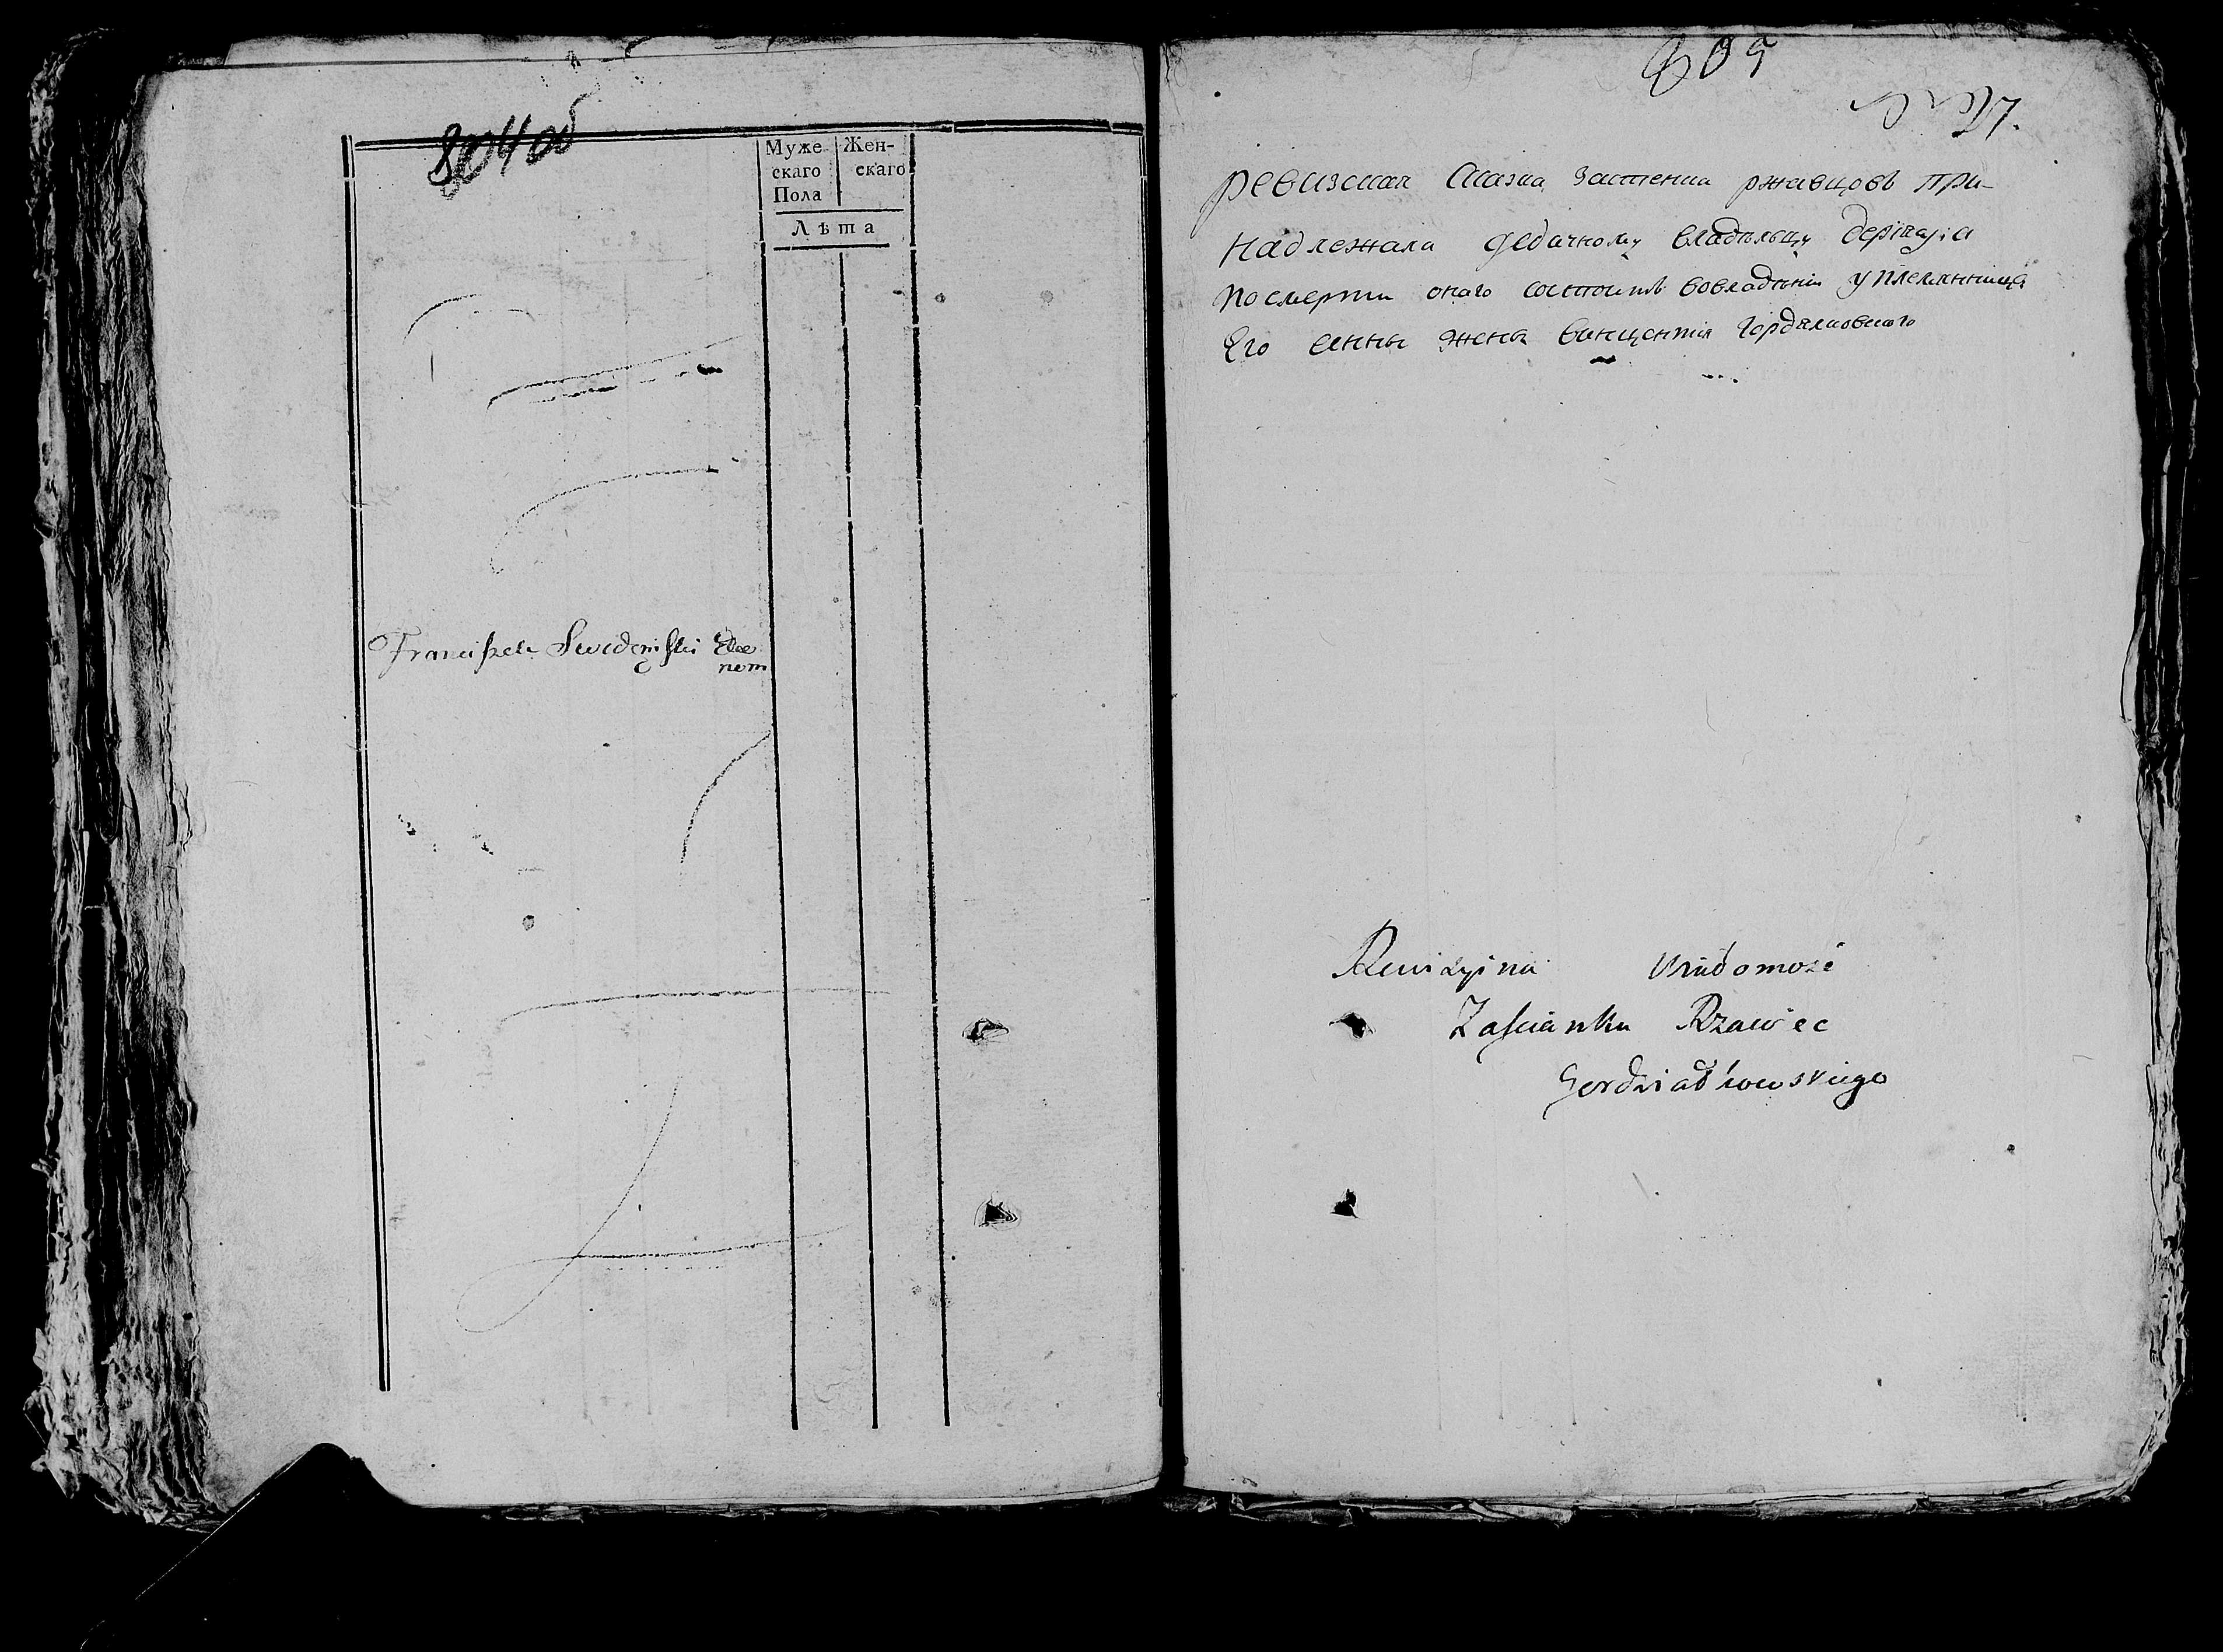 804 об
Муже
скаго
Пола
Жен-
скаго
Лѣта
Franciszek Ewe
nem
805
ревизская Сказка Застенка ржавцовъ при-
надлежала дедичному владѣльцу
по смерти онаго состоитъ вовладѣнiи у племянницы
Его анны жены винцентия Гордзялковского
Rewizyina Wiadomość
Zaścianku Rzawiec
Gordziałkowskiego